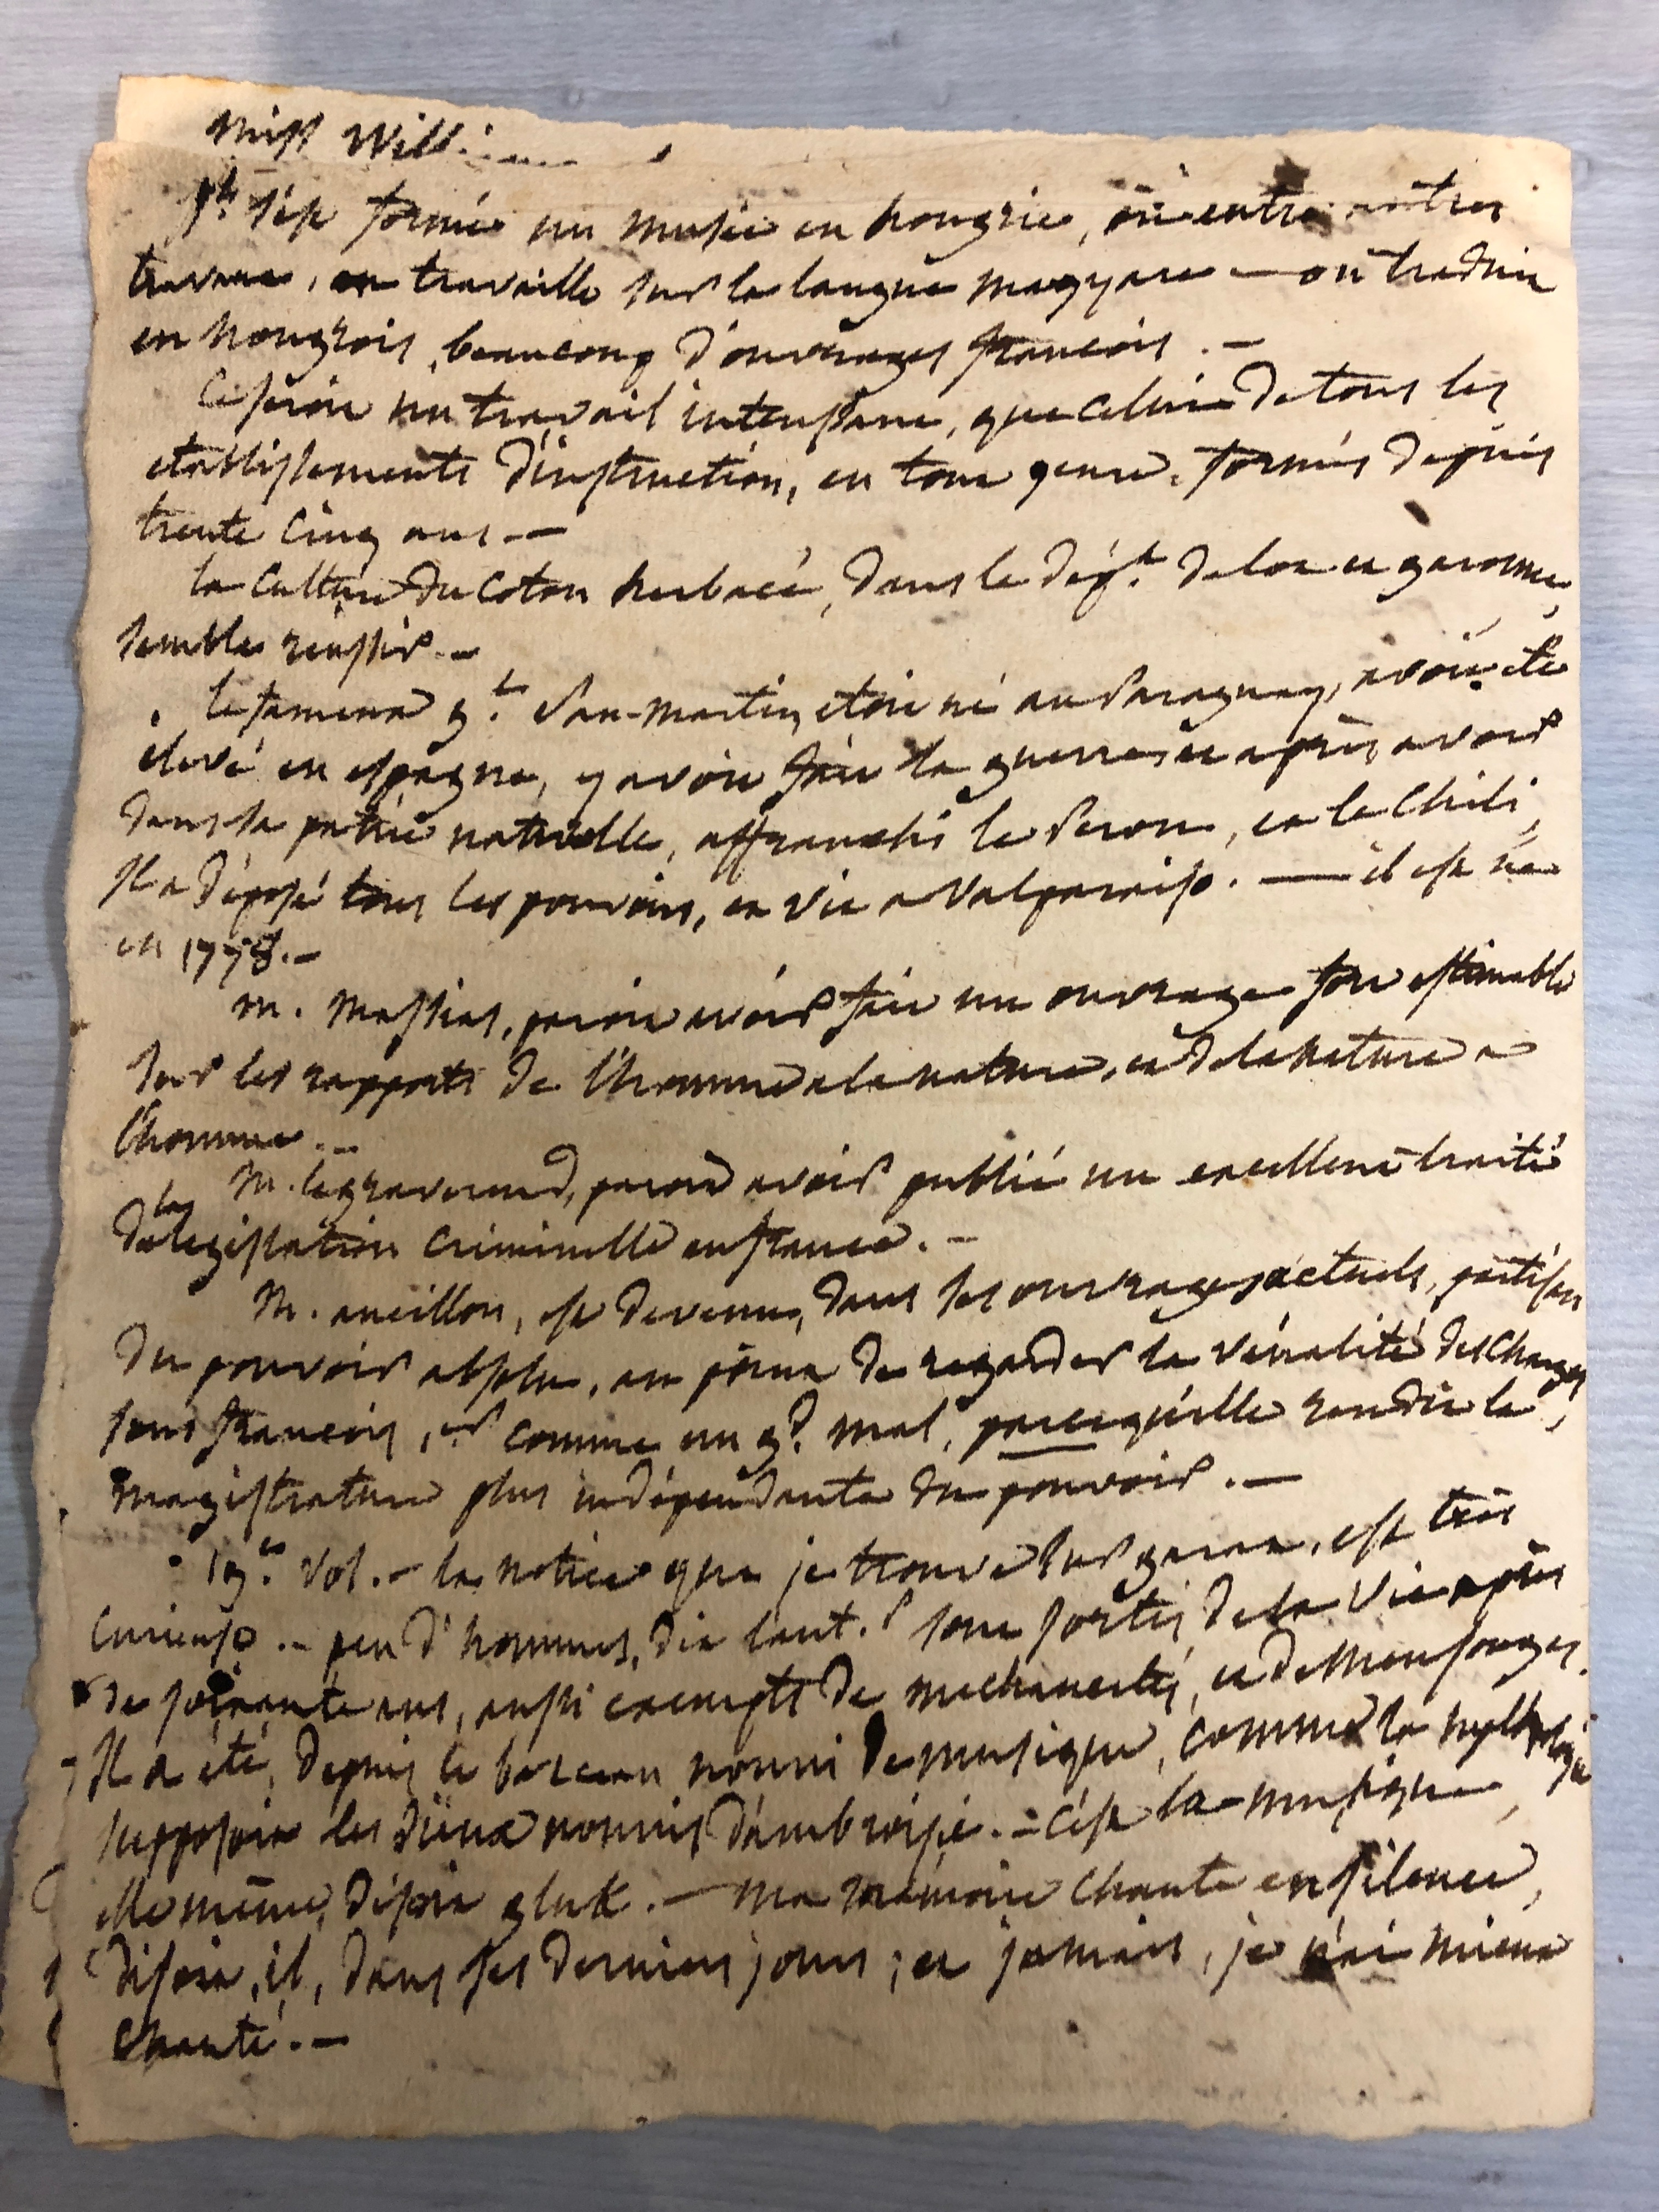 Miss Will
Il s'est formé un musée en hongrie, où entre autres
travaux, on travaille sur la langue magyare — on traduit
en hongrois, beaucoup d'ouvrages francois. —
Ce seroit un travail intéressant, que celui de tous les
etablissements d'instruction, en tout genre, formés depuis
trente cinq ans —
la culture du coton herbacé, dans le dépt. de lot et garonne,
semble réussir. —
le fameux gl. San-martin, etoit né au Paraguay, avoit été
élevé en espagne, y avoit fait la guerre et après avoir
dans sa patrie naturelle, affranchi le Perou, et le Chili,
Il a déposé tous les pouvoirs, et vit a Valparaiso. — il est né
en 1778. —
m. Massias, paroit avoir fait un ouvrage fort estimable
sur les rapports de l'homme a la nature, et de la nature a
l'homme. —
M. legraverend, paroit avoir publié un excellent traité
de la legislation criminelle en france. —
M. ancillon, est devenu, dans ses ouvrages actuels, partisan
du pouvoir absolu, au point de regarder la vénalité des charges
sous francois, 1er comme un gd. mal, parcequ'elle rendit la
magistrature plus indépendante du pouvoir. —
19.e vol. — la notice que je trouve sur garat, est très
curieuse. — peu d'hommes, dit l'aut.r sont sortis de la vie après
de soixante ans, aussi exempts de mechancetés, et de mensonges.
— Il a été, depuis le berceau nourri de musique, comme la mythologie
supposoit les dieux nourris d'ambroisie. — C'est la musique,
elle même, disoit gluk. — Ma mémoire chante en silence,
disoit, il, dans ses derniers jours ; et jamais, je n'ai mieux
chanté. —